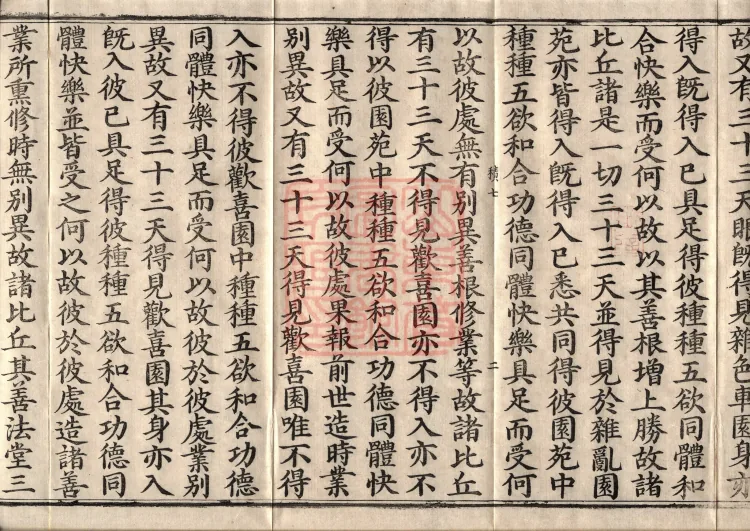 故又有三十三天眼既得見雜色車園身亦
得入既得入已具足得彼種種五欲同體和
合快樂而受何以故以其善根增上勝故諸
比丘諸是一切三十三天並得見於雜亂園
苑亦皆得入既得入已悉共同得彼園苑中
種種五欲和合功德同體快樂具足而受何
積七 二
以故彼處無有別異善根修業等故諸比丘
有三十三天不得見歡喜園亦不得入亦不
得以彼園苑中種種五欲和合功德同體快
樂具足而受何以故彼處果報前世造時業
別異故又有三十三天得見歡喜園唯不得
入亦不得彼歡喜園中種種五欲和合功德
同體快樂具足而受何以故彼於彼處業別
異故又有三十三天得見歡喜園其身亦入
既入彼已具足得彼種種五欲和合功德同
體快樂並皆受之何以故彼於彼處造諸善
業所熏修時無別異故諸比丘其善法堂三